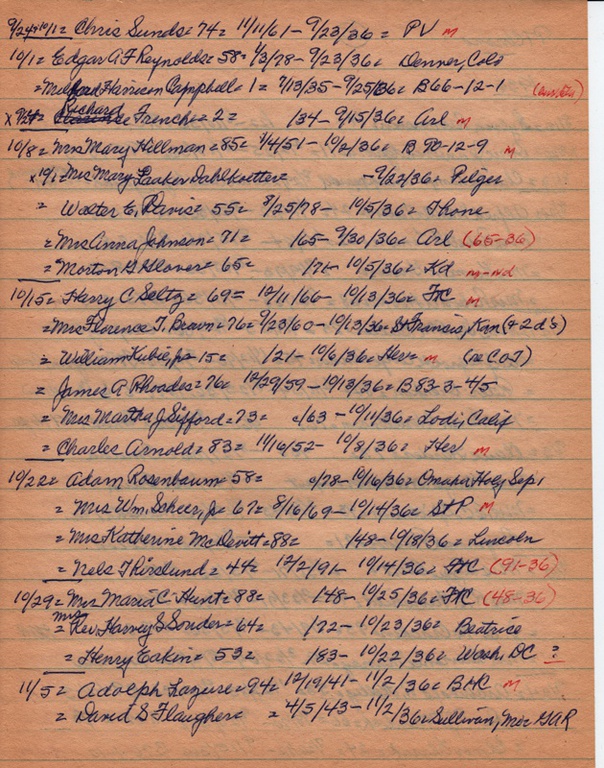 9/24+10/1= Chris Sunds= 74= 11/11/61- 9/23/36= PV m
10/1= Edgar A F Reynolds= 58= 1/3/78- 9/23/36= Denver, Colo
= Milford Harrison Campbell= 1= 7/13/35- 9/25/36= B66-12-1
x 9/24= Richard French= 2= /34- 9/15/36= Arl m
10/8= Mrs Mary Hillman= 85= 7/4/51- 10/2/36= B 90-12-9 m
x 10/1= Mrs Mary Laaker Dahlkoetter= -9/22/36= Pilger
= Walter E. Davis= 55= 8/25/78- 10/5/36= Ihone
= Mrs Anna Johnson= 71= /65- 9/30/36= Arl (65-36)
= Morton G Glover= 65= /71- 10/5/36= Kd m-nd
10/15= Harry C Seltz= 69= 12/11/66- 10/13/36= FtC m
= Mrs Florence T. Brown= 76= 9/23/60- 10/13/36= St Francis, Kan (+2d's)
= William Kubie, jr= 15= /21- 10/6/36= Her= m (re CoJ)
= James A Rhoades= 76= 12/29/59- 10/13/36= B 83-3-4/5
= Mrs Martha J. Sifford= 73= c/63- 10/11/36= Lodi, Calif
= Charles Arnold= 83= 11/16/52- 10/8/36= Her m
10/22= Adam Rosenbaum= 58= c/78- 10/16/36= Omaha Holy Sep;
= Mrs Wm. Scheer, jr= 67= 8/16/69- 10/14/36= St P m
= Mrs Katherine McDevitt= 88= /48- 10/18/36= Lincoln
= Nels T Rirslund= 44= 12/2/91- 10/14/36= FtC (91-36)
10/29= Mrs Maria C. Hunt= 88= /48- 10/25/36= FtC (48-36)
= Mrs Rev. Harvey S Souder= 64= /72- 10/23/36= Beatrice
= Henry Eakin= 53= /83- 10/22/36= Wash. DC ?
11/5= Adolph Lazure= 94= 12/19/41- 11/2/36= BHC m
= David S Flaugher= = 4/5/43- 11/2/36= Sullivan, Mo= GAR